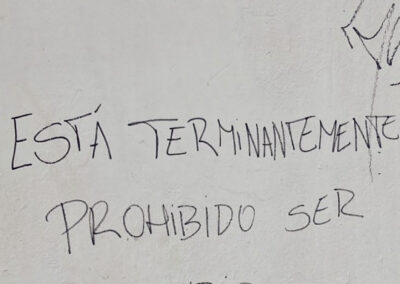 ESTÁ TERMINANTEMENTE
PROHIBIDO SER